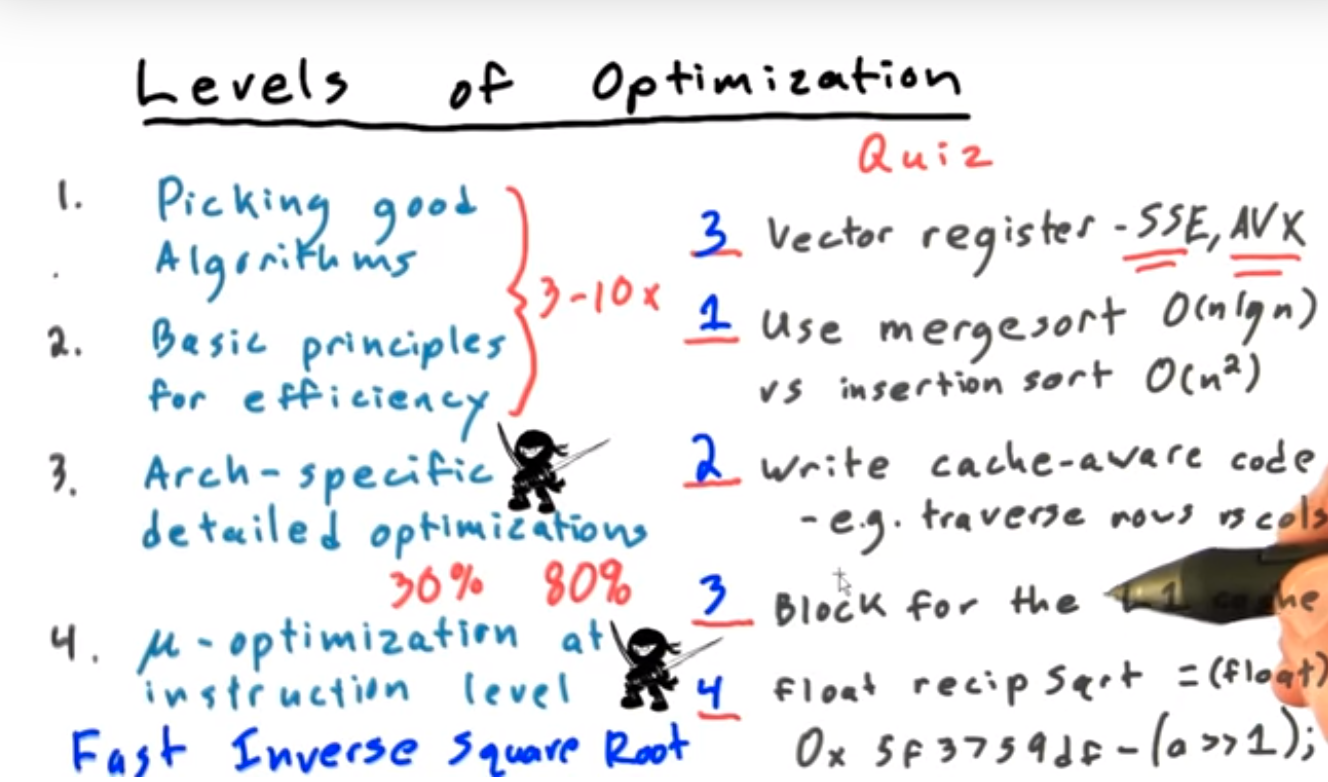 Levels of Optimization
Quiz
1. Picking good
Algorithms
2. Basic principles
for efficiency
3-10x
3. Arch-specific
detailed optimizations
30% 80%
4. μ-optimization at
instruction level
Fast Inverse Square Root
3 Vector register - SSE, AVX
1 Use mergesort O(nlgn)
vs insertion sort O(n²)
2 Write cache-aware code
- e.g. traverse rows vs cols
3 Block for the
4 float recip Sqrt = (float)
0x 5f3759df - (a >> 1);